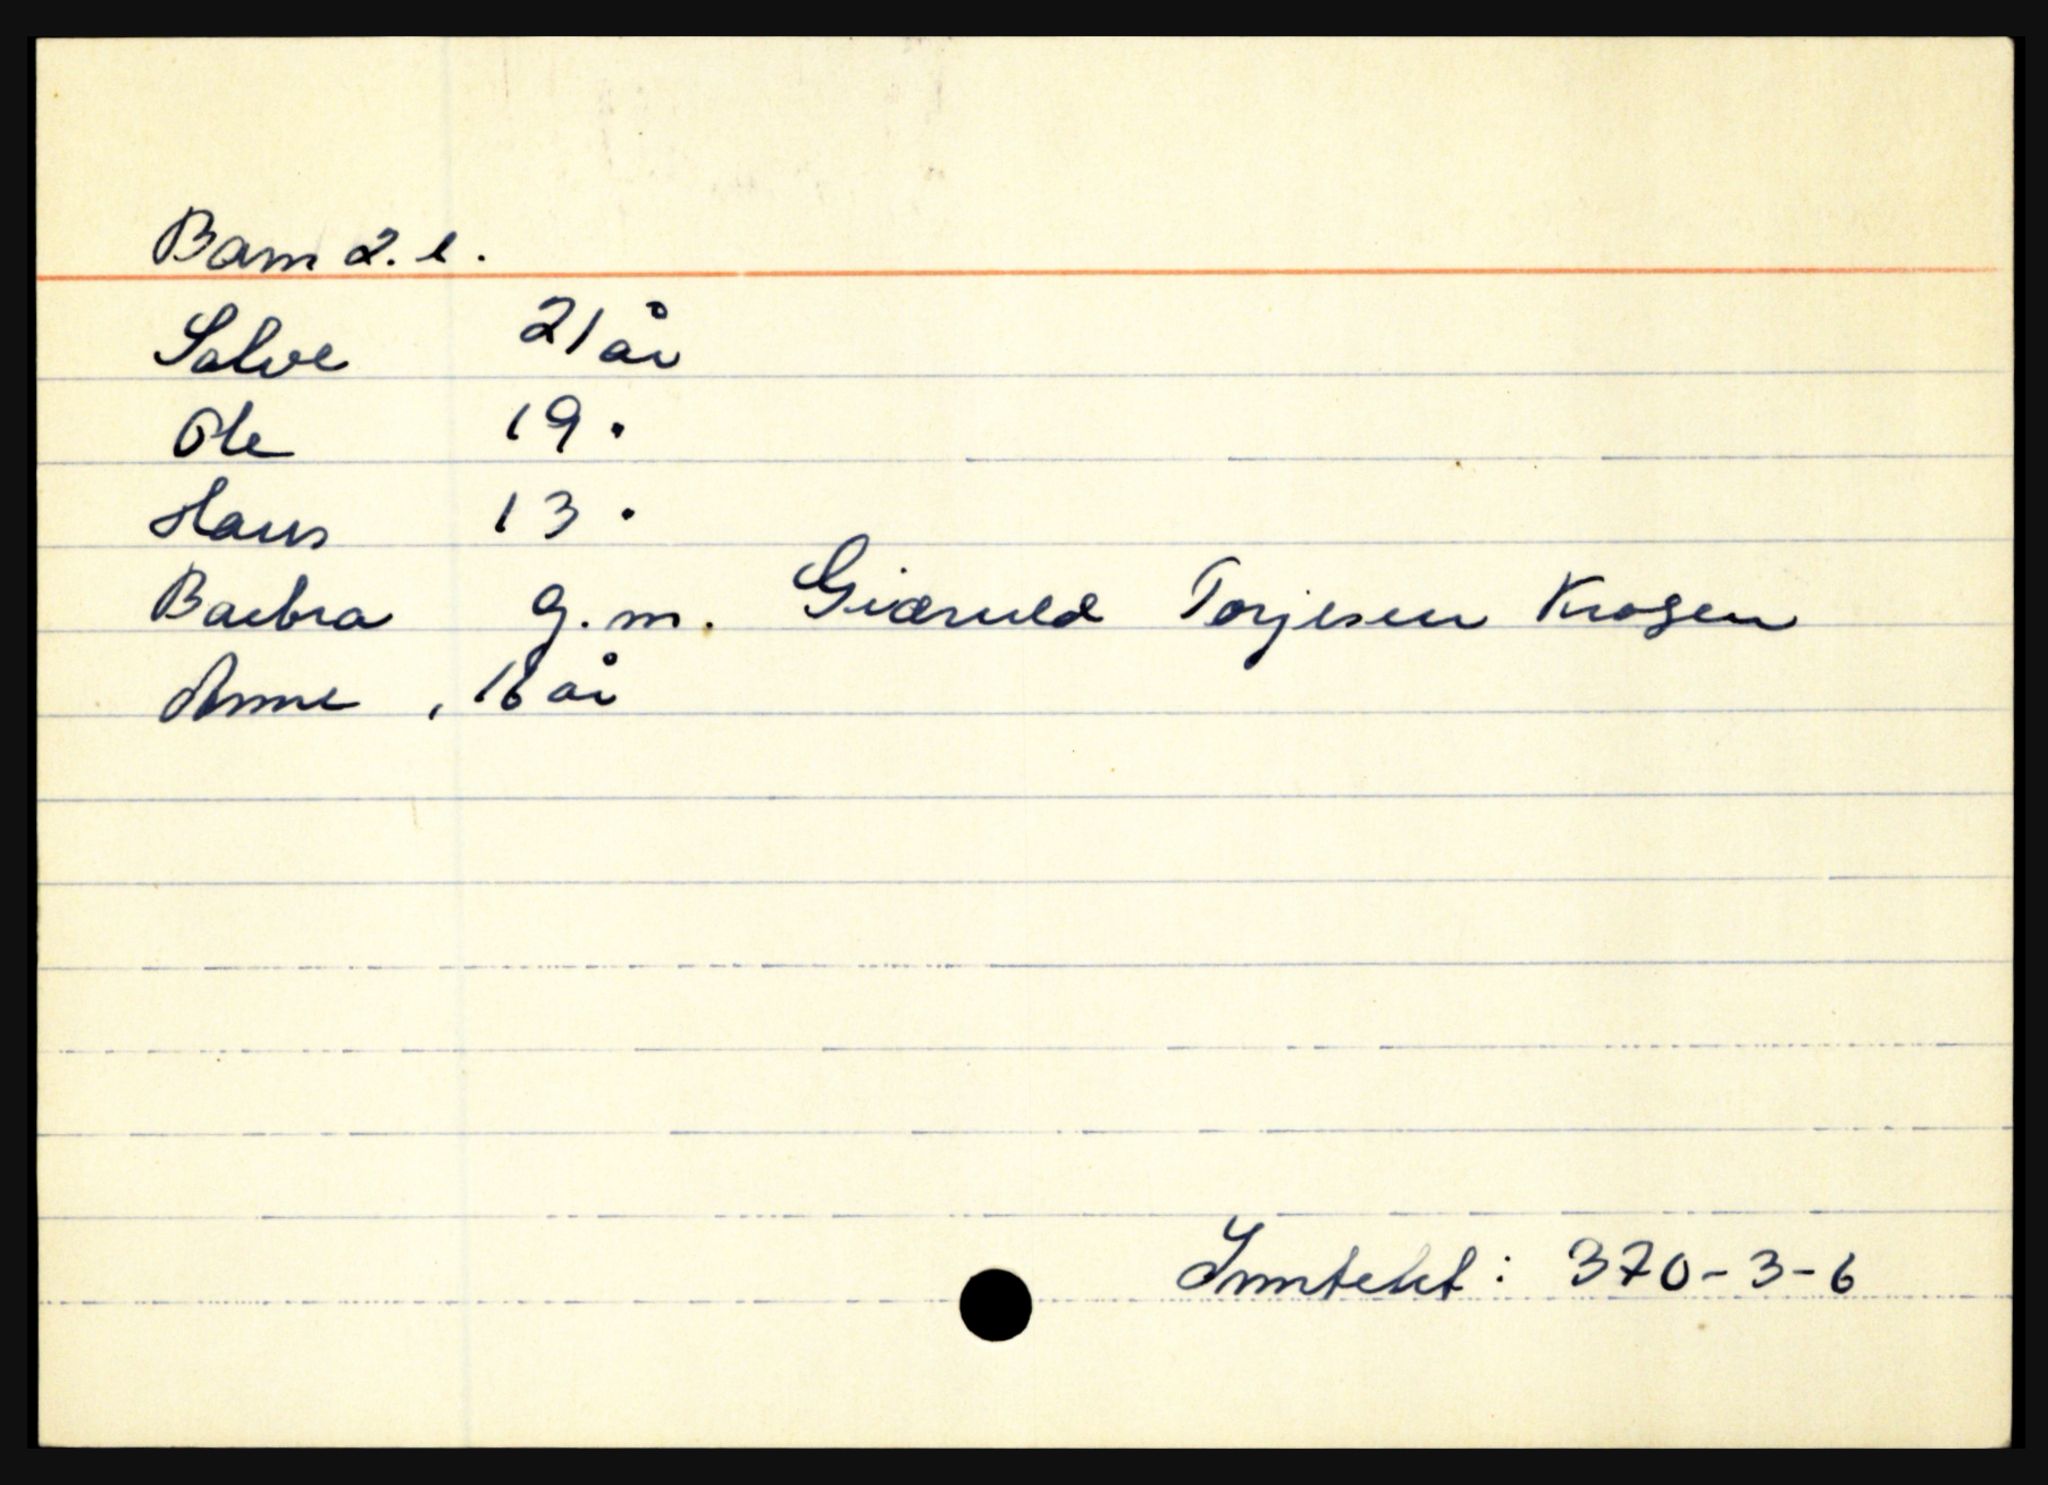 Barn 2. e.
Salve 21 år
Ole 19 "
Hans 13 "
Barbra g.m. Gieruld Torjesen Krogen
Anne , 16 år
Inntekt: 370-3-6